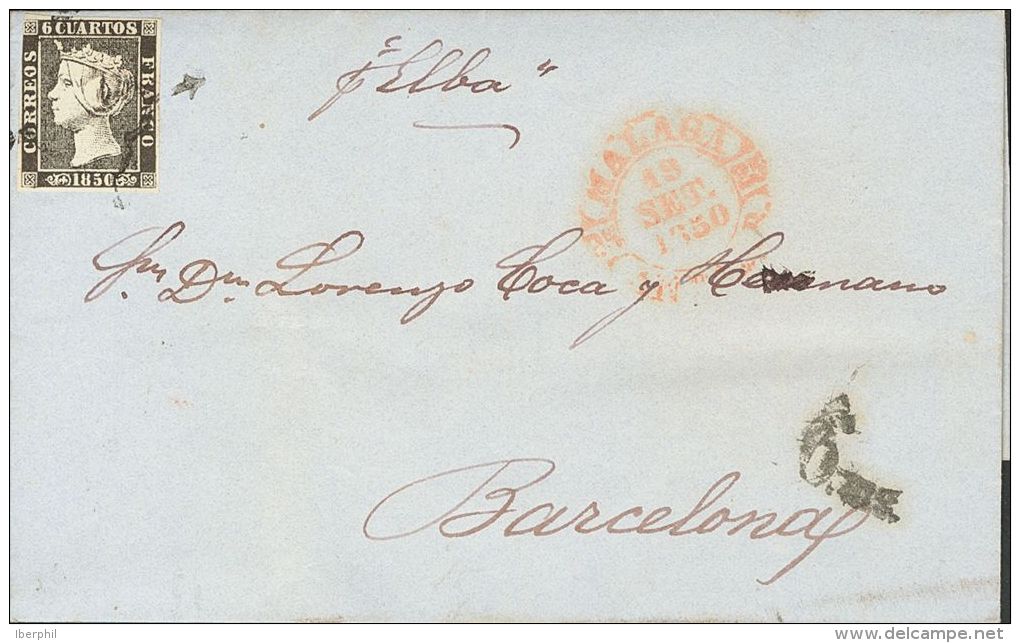 6 CUARTOS
CORREOS
FRANCO
1850
p "Elba"
MALAGA
18
SET.
1850
Sr. Dn. Lorenzo Coca y Hermano
Barcelona
Iberphil
delcampe.net